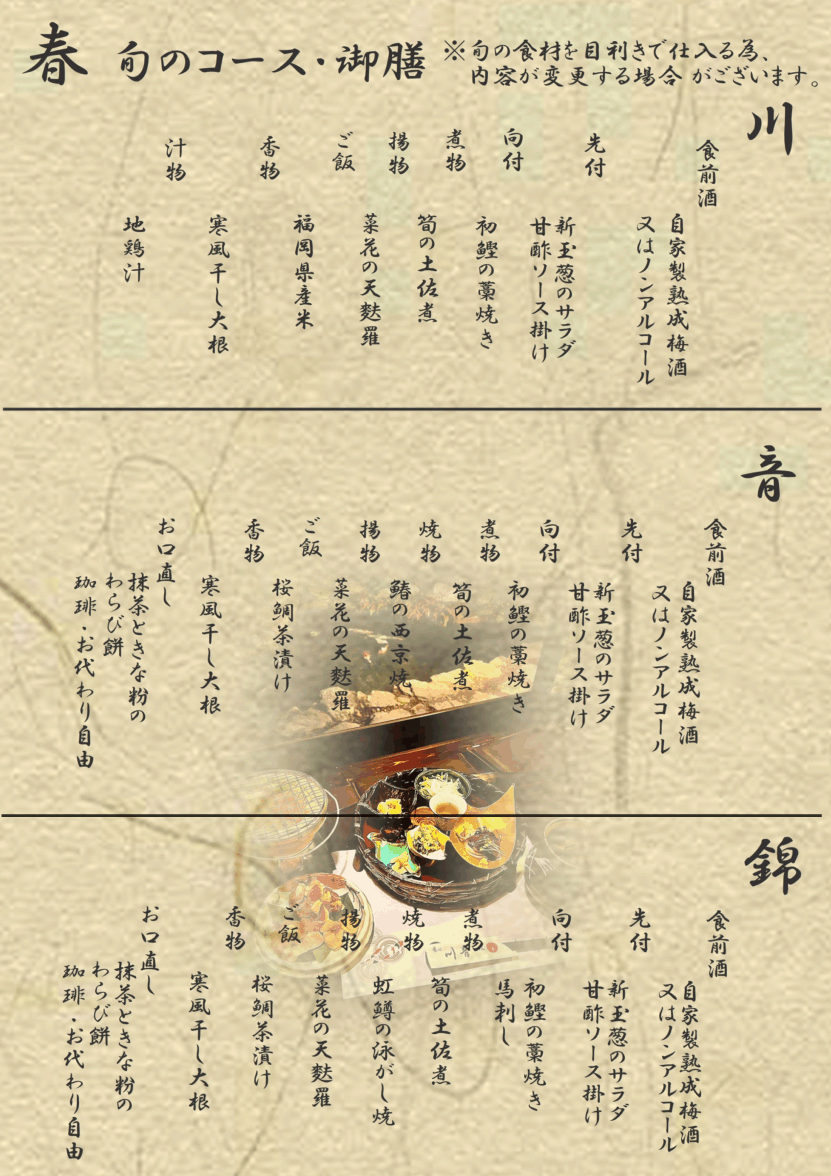 春 旬のコース・御膳
※旬の食材を目利きで仕入る為、
内容が変更する場合 がございます。
川
食前酒
自家製熟成梅酒
又はノンアルコール
先付
新玉葱のサラダ
甘酢ソース掛け
向付
初鰹の藁焼き
煮物
筍の土佐煮
揚物
菜花の天麩羅
ご飯
福岡県産米
香物
寒風干し大根
汁物
地鶏汁
音
食前酒
自家製熟成梅酒
又はノンアルコール
先付
新玉葱のサラダ
甘酢ソース掛け
向付
初鰹の藁焼き
煮物
筍の土佐煮
焼物
鰆の西京焼
揚物
菜花の天麩羅
ご飯
桜鯛茶漬け
香物
寒風干し大根
お口直し
抹茶ときな粉の
わらび餅
珈琲・お代わり自由
錦
食前酒
自家製熟成梅酒
又はノンアルコール
先付
新玉葱のサラダ
甘酢ソース掛け
向付
初鰹の藁焼き
馬刺し
煮物
筍の土佐煮
焼物
虹鱒の泳がし焼
揚物
菜花の天麩羅
ご飯
桜鯛茶漬け
香物
寒風干し大根
お口直し
抹茶ときな粉の
わらび餅
珈琲・お代わり自由